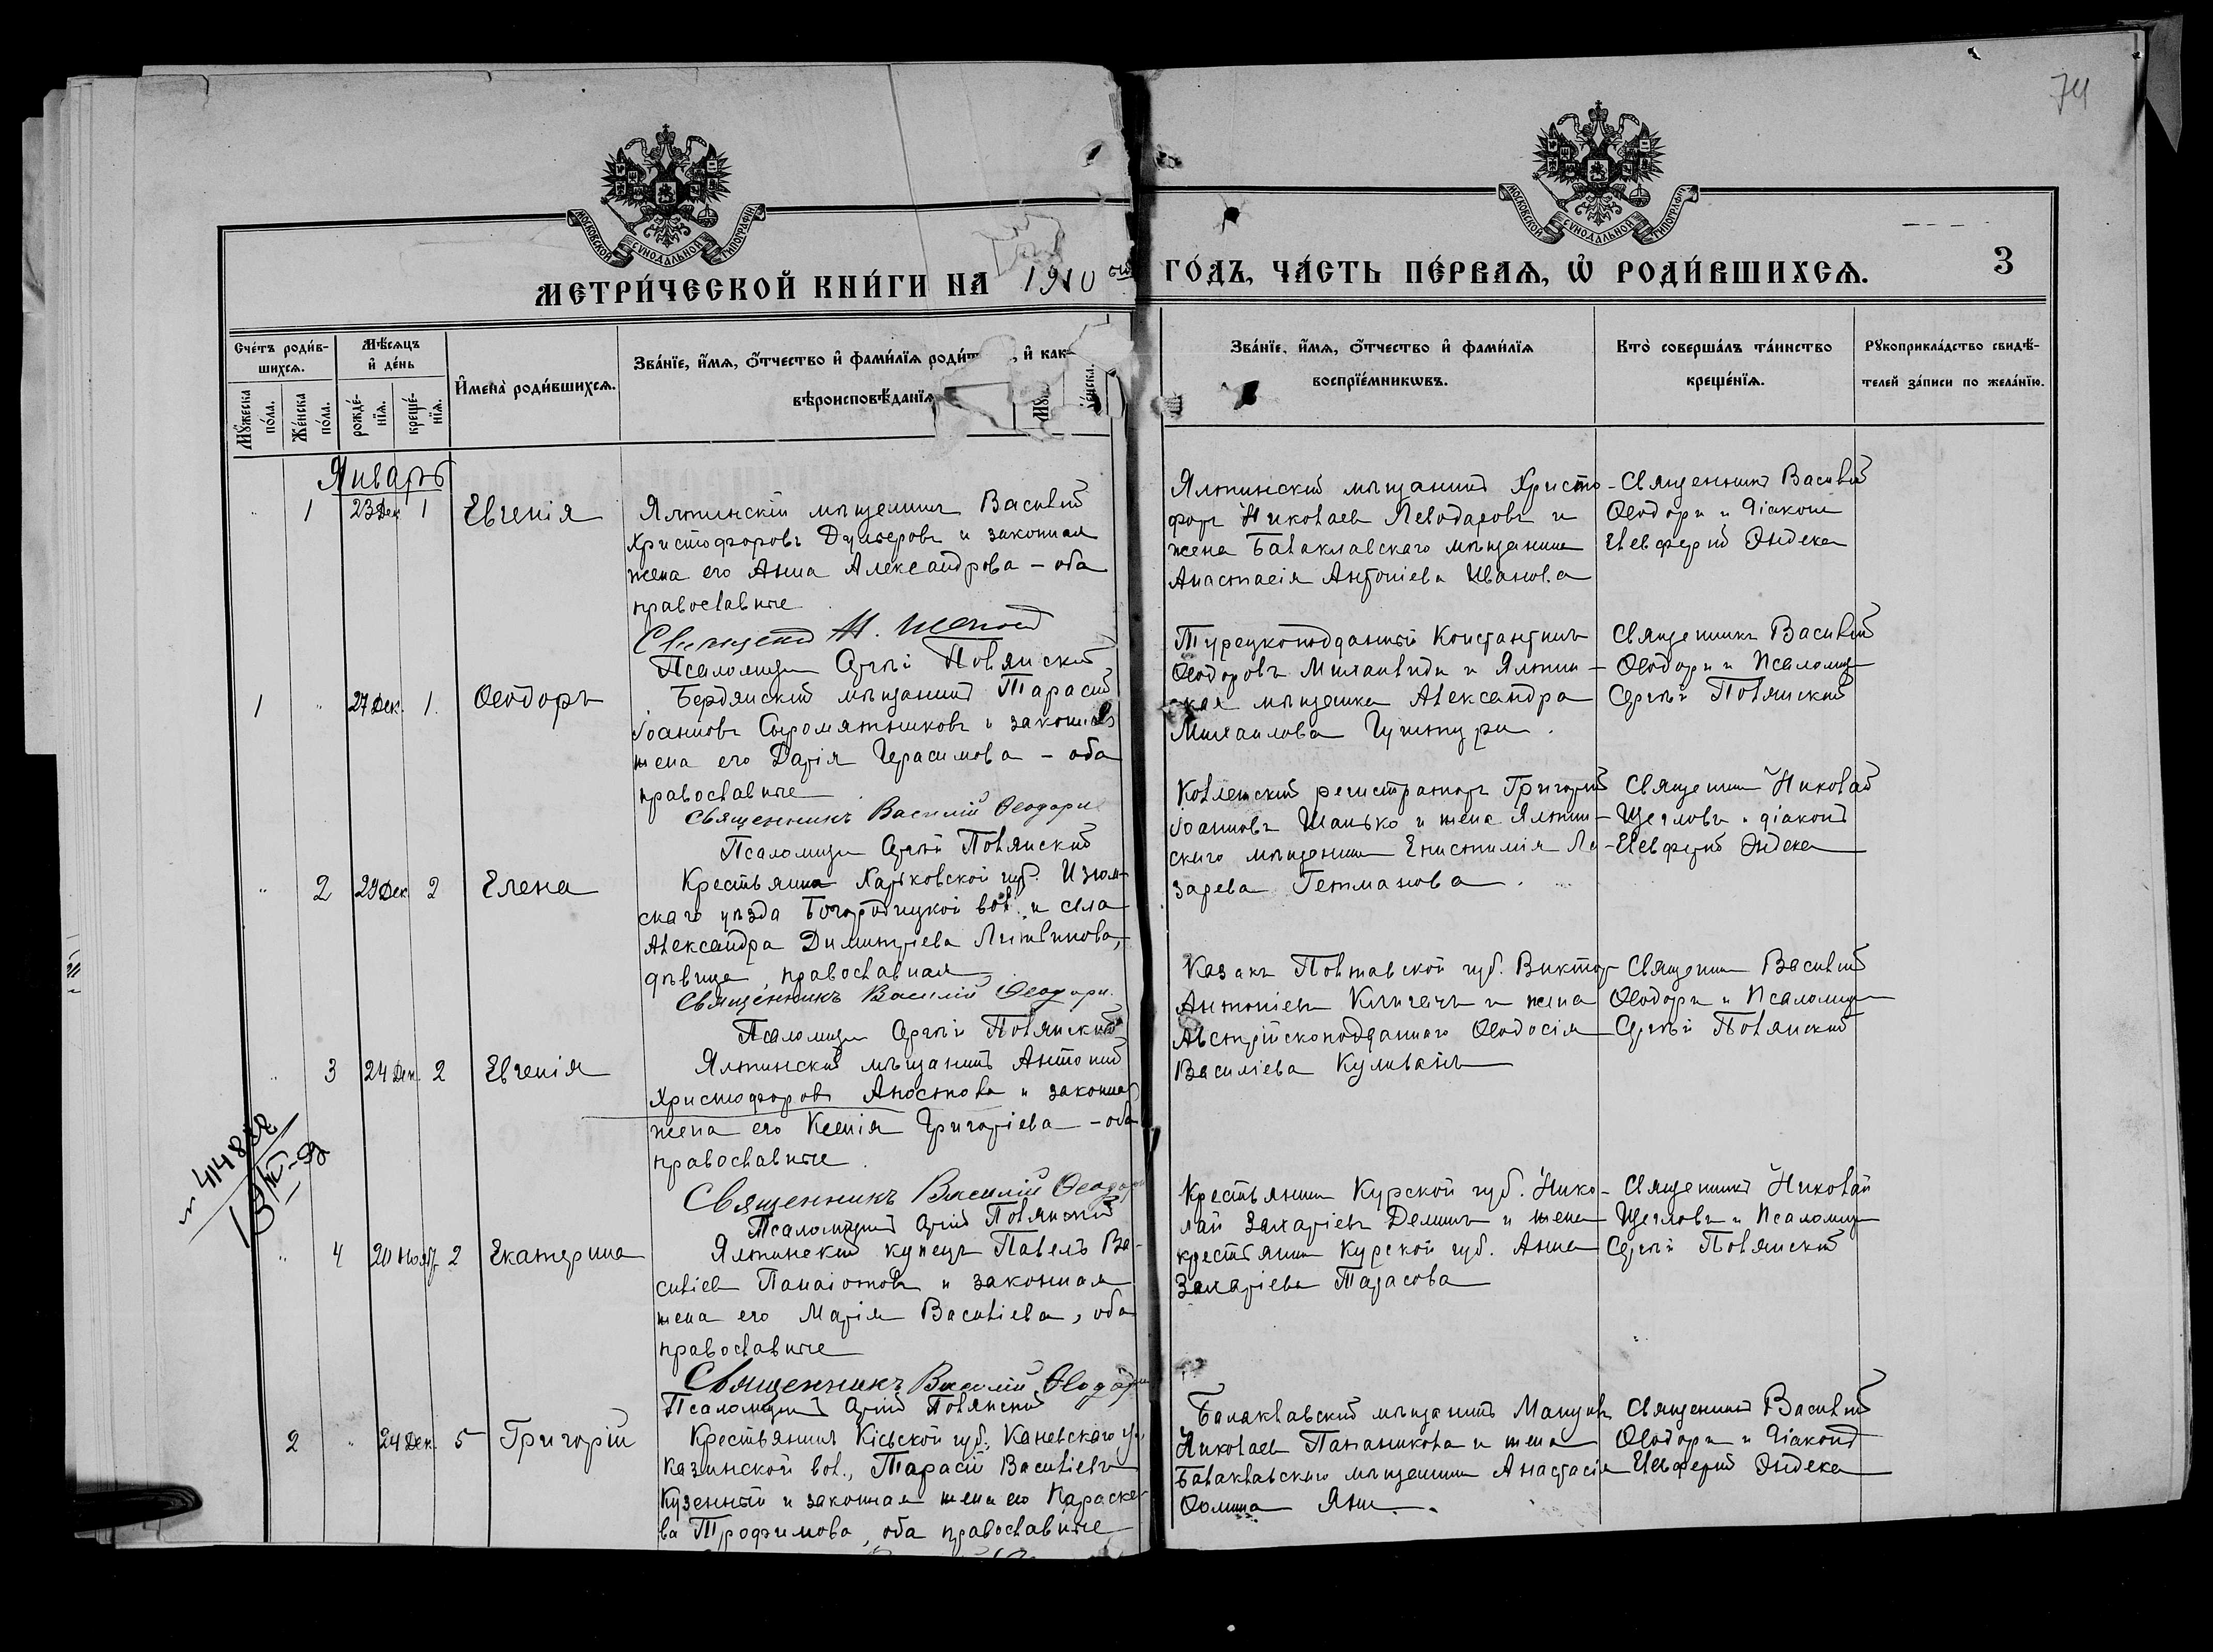 74
МОСКОВСКОЙ СѴНОДАЛЬНОЙ ТИПОГРАФІИ
МОСКОВСКОЙ СѴНОДАЛЬНОЙ ТИПОГРАФІИ
МЕТРИ́ЧЕСКОЙ КНИ́ГИ НА 1910 ГО́ДЪ, ЧА́СТЬ ПЕ́РВАѦ, Ѡ҆ РОДИ́ВШИХСѦ.
3
Счетъ роди́в-
шихсѧ.
Му́жеска
по́ла.
Же́нска
по́ла.
Мѣ́сѧцъ
и҆ де́нь
рожде́-
нїѧ.
креще́-
нїѧ.
И҆мена̀ роди́вшихсѧ.
Зва́нїе, и҆́мѧ, ѻ҆́тчество и҆ фами́лїѧ роди́т , и҆ как-
вѣроисповѣ́данїѧ
Зва́нїе, и҆́мѧ, ѻ҆́тчество и҆ фами́лїѧ
воспрїе́мникѡвъ.
Кто̀ соверша́лъ та́инство
креще́нїѧ.
Рꙋкоприкла́дство свидѣ́-
телей за́писи по жела́нїю.
Январь
1 23 Дек. 1 Евгенія
Ялтинскій мѣщанинъ Василій
Христофоровъ и законная
жена его Анна Александрова - оба
православные
Псаломщ Сергѣй Полянскій
Ялтинскій мѣщанинъ Христо-
форъ Николаевъ и
жена Балаклавскаго мѣщанина
Анастасія Антоніева Иванова
Священникъ Василій
Ѳеодори и діаконъ
Елевферій Эндека
1 27 Дек. 1. Ѳеодоръ
Бердянскій мѣщанинъ Тарасій
Іоанновъ Сыромятниковъ и законная
жена его Дарія Герасимова - оба
православные
Священникъ Василій Ѳеодори
Псаломщ Сергѣй Полянскій
Турецкоподданный Константинъ
Ѳеодоровъ и Ялтин-
ская мѣщанка Александра
Михаилова
Священникъ Василій
Ѳеодори и Псаломщ
Сергѣй Полянскій
2 29 Дек. 2 Елена
Крестьянка Харьковской губ. Изюм-
скаго уѣзда Богородицкой вол. и села
Александра Димитріева Литвинова,
дѣвица, православная
Священникъ Василій Ѳеодори.
Псаломщ Сергѣй Полянскій
Коллежскій регистраторъ Григорій
Іоанновъ Шанько и жена Ялтин-
скаго мѣщанина Ла-
зарева Гетманова.
Священникъ Николай
Щегловъ и діаконъ
Елевферій Эндека
3 24 Дек. 2 Евгенія
Ялтинскій мѣщанинъ Антоній
Христофоровъ и законная
жена его Ксенія Григоріева - оба
православные.
Священникъ Василій Ѳеодори
Псаломщикъ Сергѣй Полянскій
Казакъ Полтавской губ. Викторъ
Антоніевъ и жена
Австрійскоподданнаго Ѳеодосія
Василіева
Священникъ Василій
Ѳеодори и Псаломщ
Сергѣй Полянскій
4 20 Нояб. 2 Екатерина
Ялтинскій купецъ Павелъ Ва-
силіевъ Панаіотовъ и законная
жена его Марія Василіева, оба
православные
Священникъ Василій Ѳеодори
Псаломщикъ Сергѣй Полянскій
Крестьянинъ Курской губ. Нико-
лай Захаріевъ Деминъ и жена
крестьянина Курской губ. Анна
Захаріева Тарасова
Священникъ Николай
Щегловъ и Псаломщ
Сергѣй Полянскій
2 24 Дек. 5 Григорій
Крестьянинъ Кіевской губ., Каневскаго у.,
Казинской вол., Тарасій Василіевъ
и законная жена его Параске-
ва Трофимова, оба православные
Балаклавскій мѣщанинъ
Николаевъ и жена
Балаклавскаго мѣщанина Анастасія
Священникъ Василій
Ѳеодори и діаконъ
Елевферій Эндека